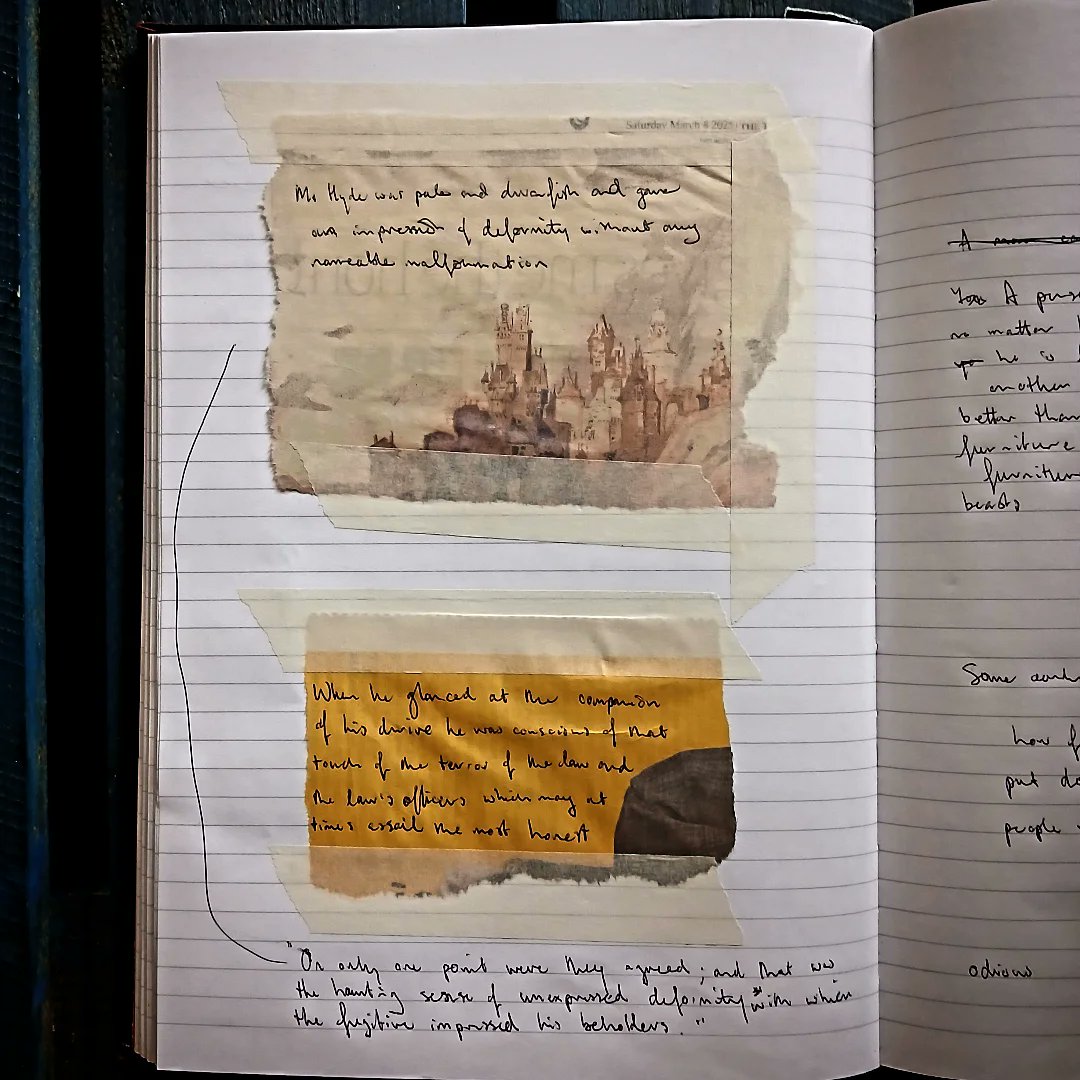 Saturday March 8 2025 | THE
Mr Hyde was pale and dwarfish and gave
an impression of deformity without any
nameable malformation
When he glanced at the companion
of his drive he was conscious of that
touch of the terror of the law and
the law's officers which may at
times assail the most honest
"On only one point were they agreed; and that was
the haunting sense of unexpressed deformity* with which
the fugitive impressed his beholders."
A
A
no matter
he is
another
better than
furniture
beasts
Some
how
put
people
odious